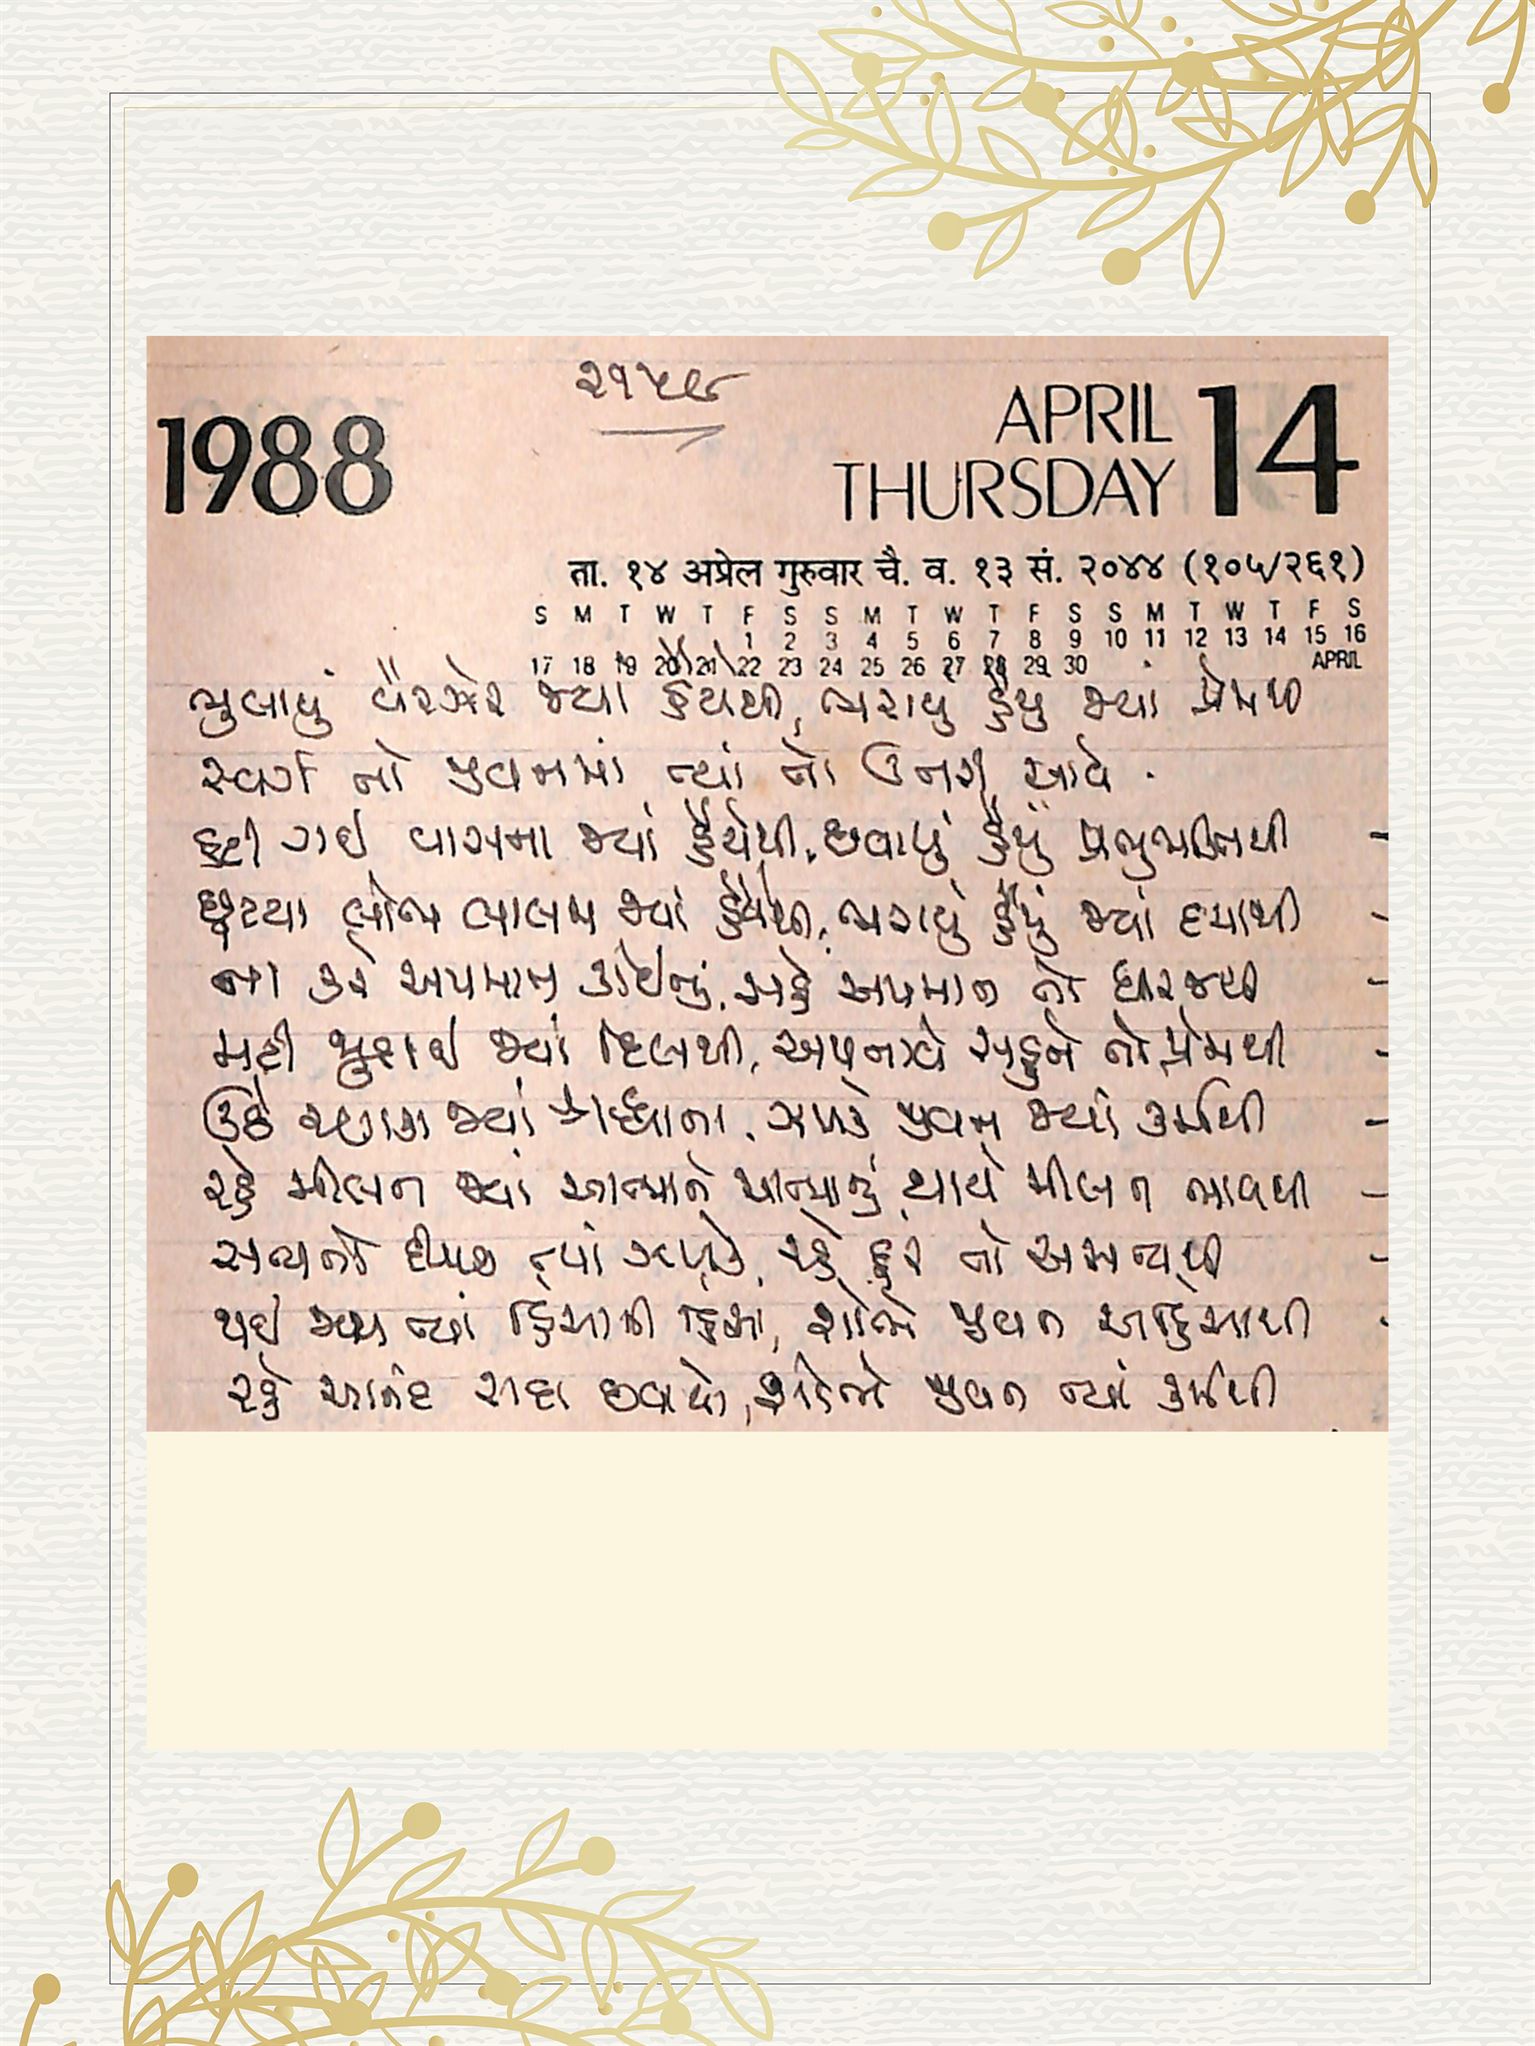 ૨૧૫૯
1988
APRIL 14
THURSDAY
ता. १४ अप्रेल गुरुवार चै. व. १३ सं. २०४४ (१०५/२६१)
S M T W T F S S M T W T F S S M T W T F S
1 2 3 4 5 6 7 8 9 10 11 12 13 14 15 16
17 18 19 20 21 22 23 24 25 26 27 28 29 30 APRIL
ભુલાયું વૈરઝેર જ્યાં હૈયેથી, ભરાયું હૈયું જ્યાં પ્રેમથી
સ્વર્ગ તો જીવનમાં ત્યાં તો ઉતરી આવે .
હટી ગઈ વાસના જ્યાં હૈયેથી, છવાયું હૈયું પ્રભુભક્તિથી -
છૂટયા લોભ લાલચ જ્યાં હૈયેથી, ભરાયું હૈયું જ્યાં દયાથી -
ના કરે અપમાન કોઈનું, સહે અપમાન તો ધીરજથી -
મટી જુદાઈ જ્યાં દિલથી, અપનાવે સહુને તો પ્રેમથી -
ઉઠે રણકા જ્યાં શ્રદ્ધાના, ઝળકે જીવન જ્યાં કર્મથી -
રહે મીલન જ્યાં આત્માને આત્માનું, થાયે મીલન ભાવથી -
સત્યનો દીપક ત્યાં ઝળકે, રહે દૂર તો અસત્યથી -
થઈ જાય ત્યાં હિંસાની હિંસા, શોભે જીવન અહિંસાથી -
રહે આનંદ સદા છવાયો, શોભે જીવન ત્યાં કર્મથી